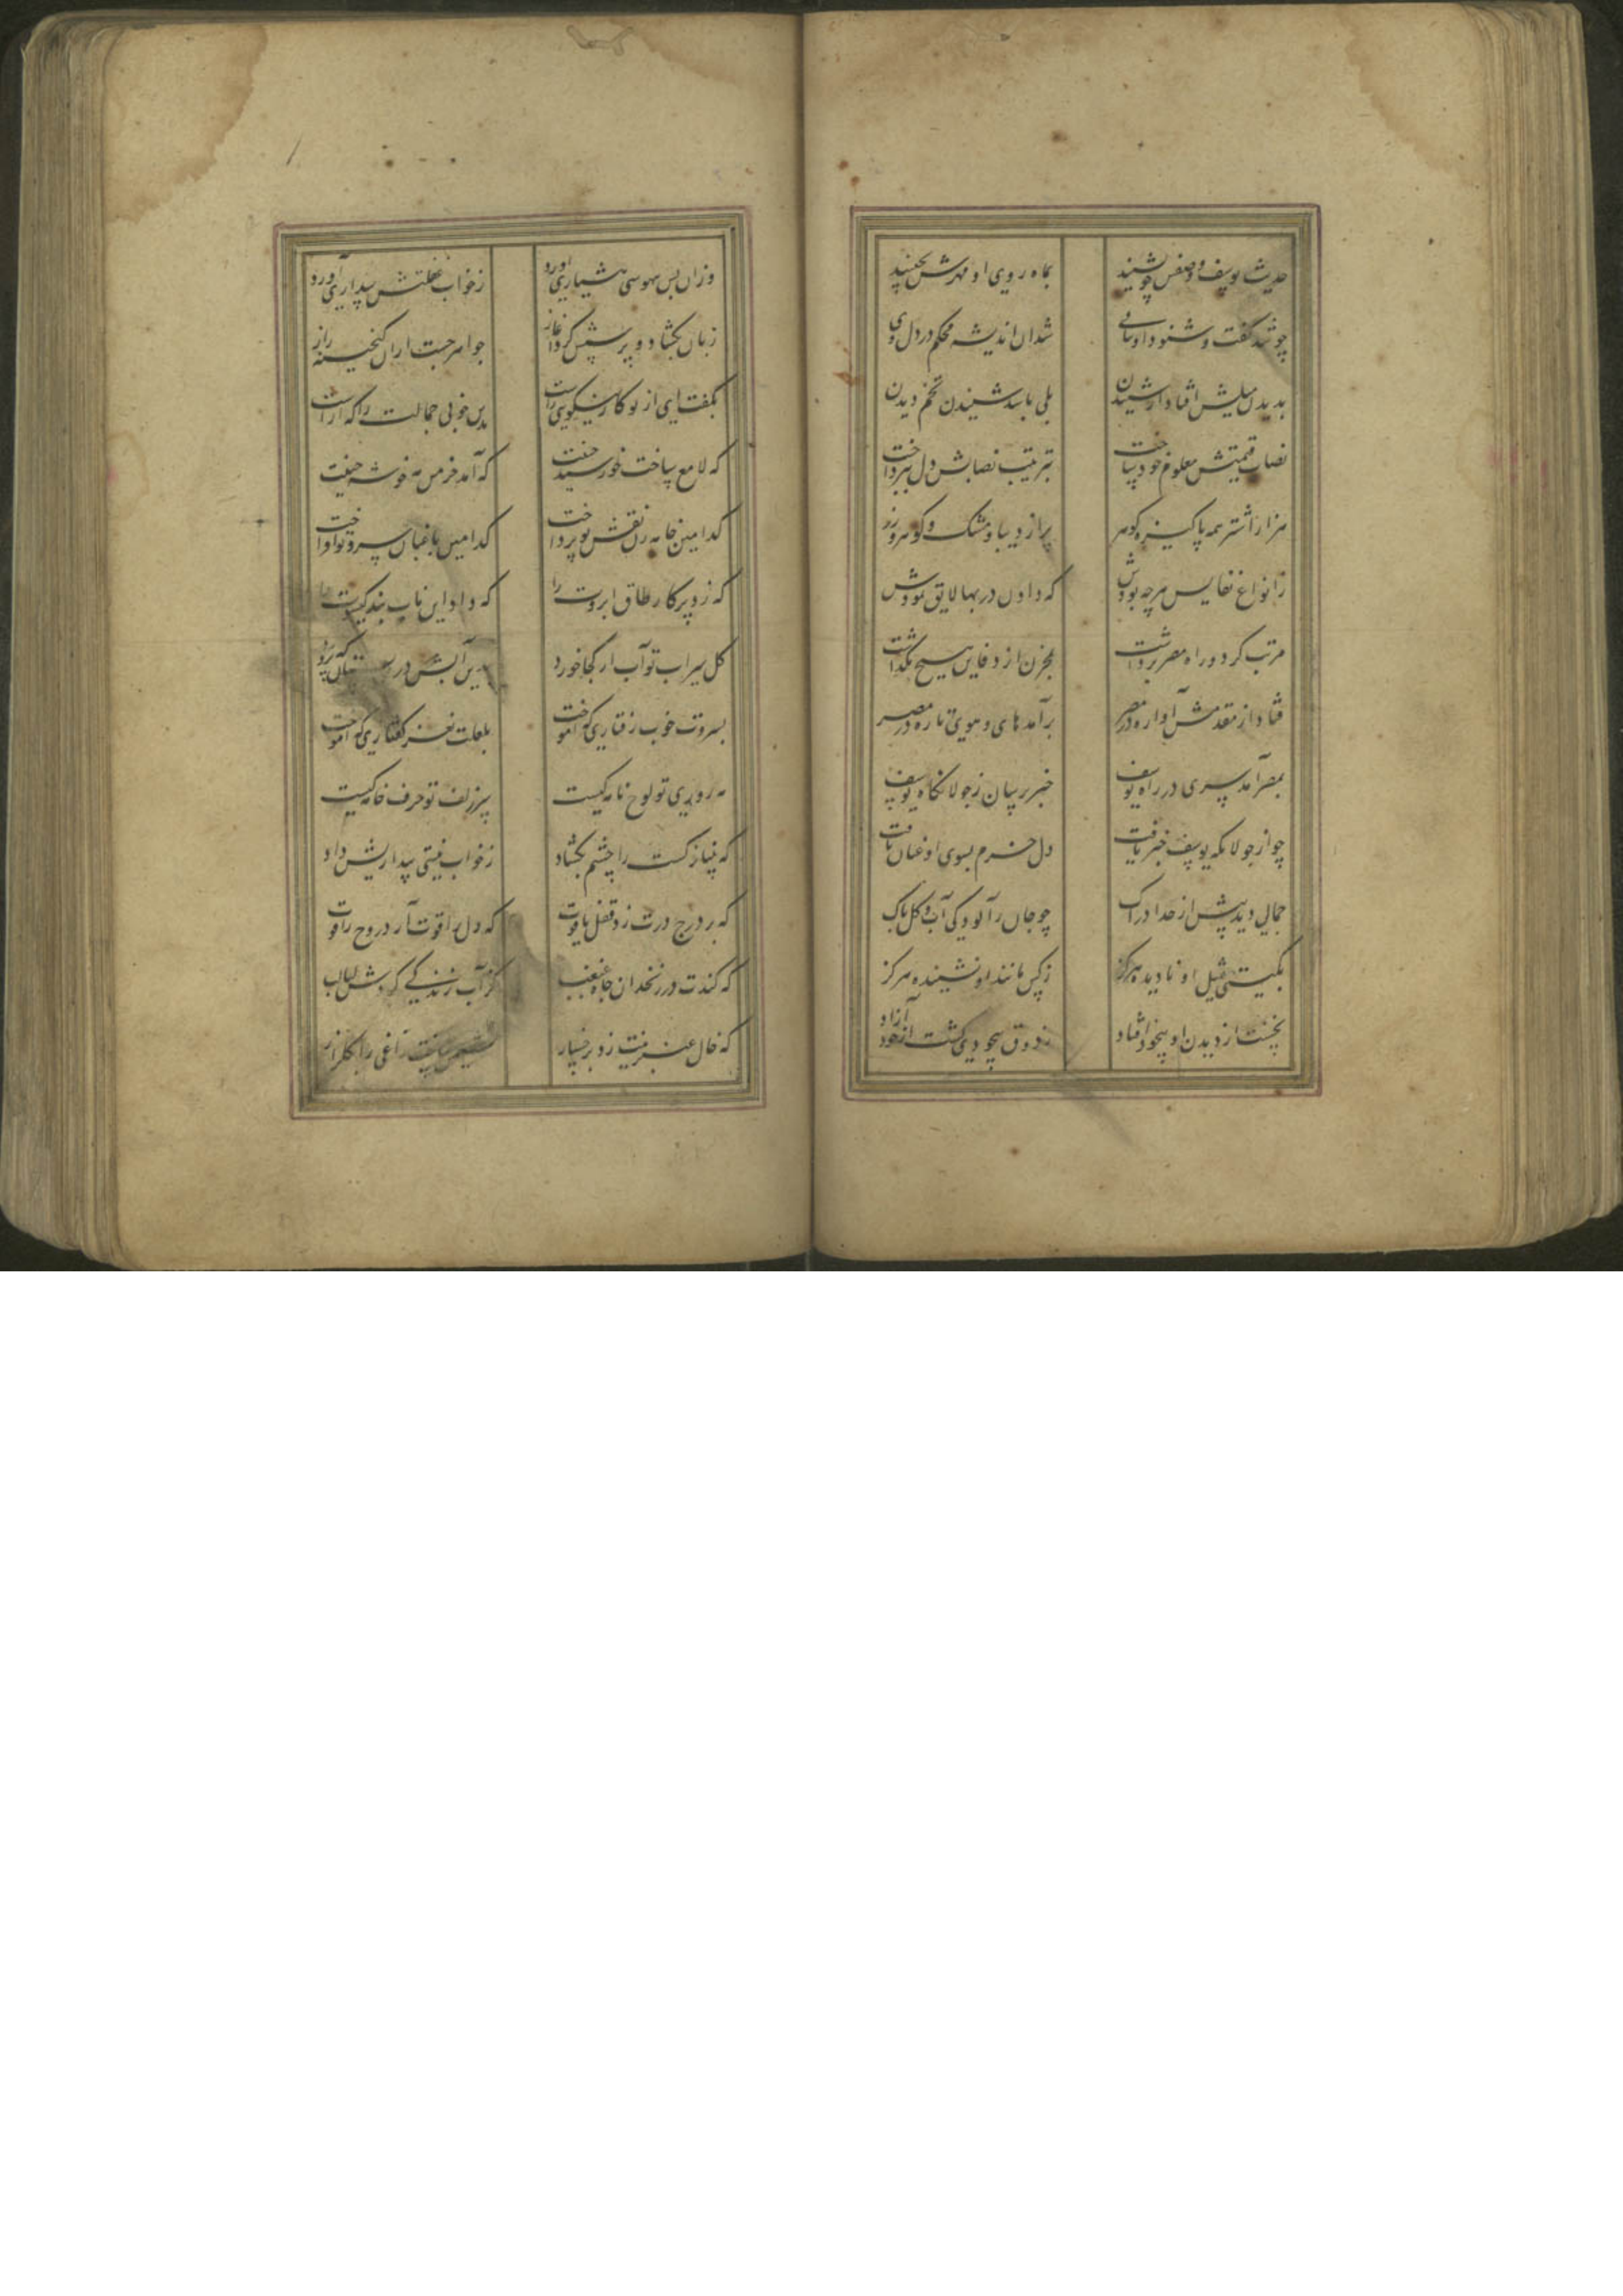 حدیث یوسف و وصفش چو بشنید بماه روی او مهرش بجنبید
چو شد گفت و شنود او پیاپی شد آن اندیشه محکم در دل وی
بدیدن میلش افتاد از شنیدن بلی باشد شنیدن تخم دیدن
نصاب قیمتش معلوم خود ساخت بترتیب نصابش دل بپرداخت
هزار اشتر همه پاکیزه گوهر پر از دیبا و مشک و گوهر و زر
ز انواع نفایس هرچه بودش که دادن در بها لایق نمودش
مرتب کرد و راه مصر برداشت بمخزن از دفاین هیچ نگذاشت
فتاد از مقدمش آوازه در مصر برآمد های و هویی تازه در مصر
بمصر آمد پرسی در راه یوسف خبر پرسان ز جولانگاه یوسف
چو از جولانگه یوسف خبر یافت دل خرم بسوی او عنان تافت
جمالی دید بیش از حد ادراک چو جان ز آلودگی آب و گل پاک
بگیتی مثل او نادیده هرگز ز کس مانند او نشنیده هرگز
نخست از دیدن او بیخود افتاد ز ذوق بیخودی گشت از خود آزاد
وزان پس بیهوشی هشیاری آورد ز خواب غفلتش بیداری آورد
زبان بگشاد و پرسش کرد آغاز جواهر جست از ان گنجینه راز
بگفت ای از تو کار نیکویی راست بدین خوبی جمالت را که آراست
که لامع ساخت خورشید جبینت که آمد خرمن مه خوشه چینت
کدامین خامه زن نقش تو پرداخت کدامین باغبان سرو تو افراخت
که زد پرکار طاق ابروت را که داد این تاب بند گیسوت را
گل سیراب تو آب از کجا خورد بدین آبش در بستان که پرورد
بسروت خوب رفتاری که آموخت بلعلت نغز گفتاری که آموخت
مه روی تو لوح نامه کیست سر زلف تو حرف خامه کیست
که بینا نرگست را چشم بگشاد ز خواب نیستی بیداریش داد
که بر درج درت زد قفل یاقوت که دل را قوت آمد روح را قوت
که کندت در زنخدان چاه غبغب کز آب زندگی کردش لبالب
که خال عنبرینت زد برخسار نشیمن ساخت زاغی را بگلزار